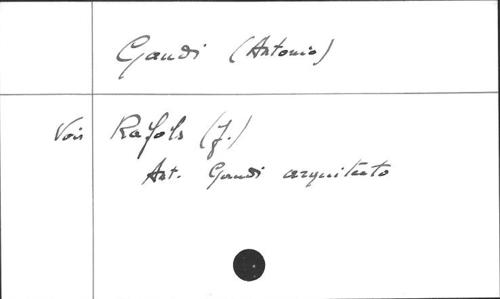 Gaudi (Antonio)
Voir Rafols (J.)
Ant. Gaudi arquitecto